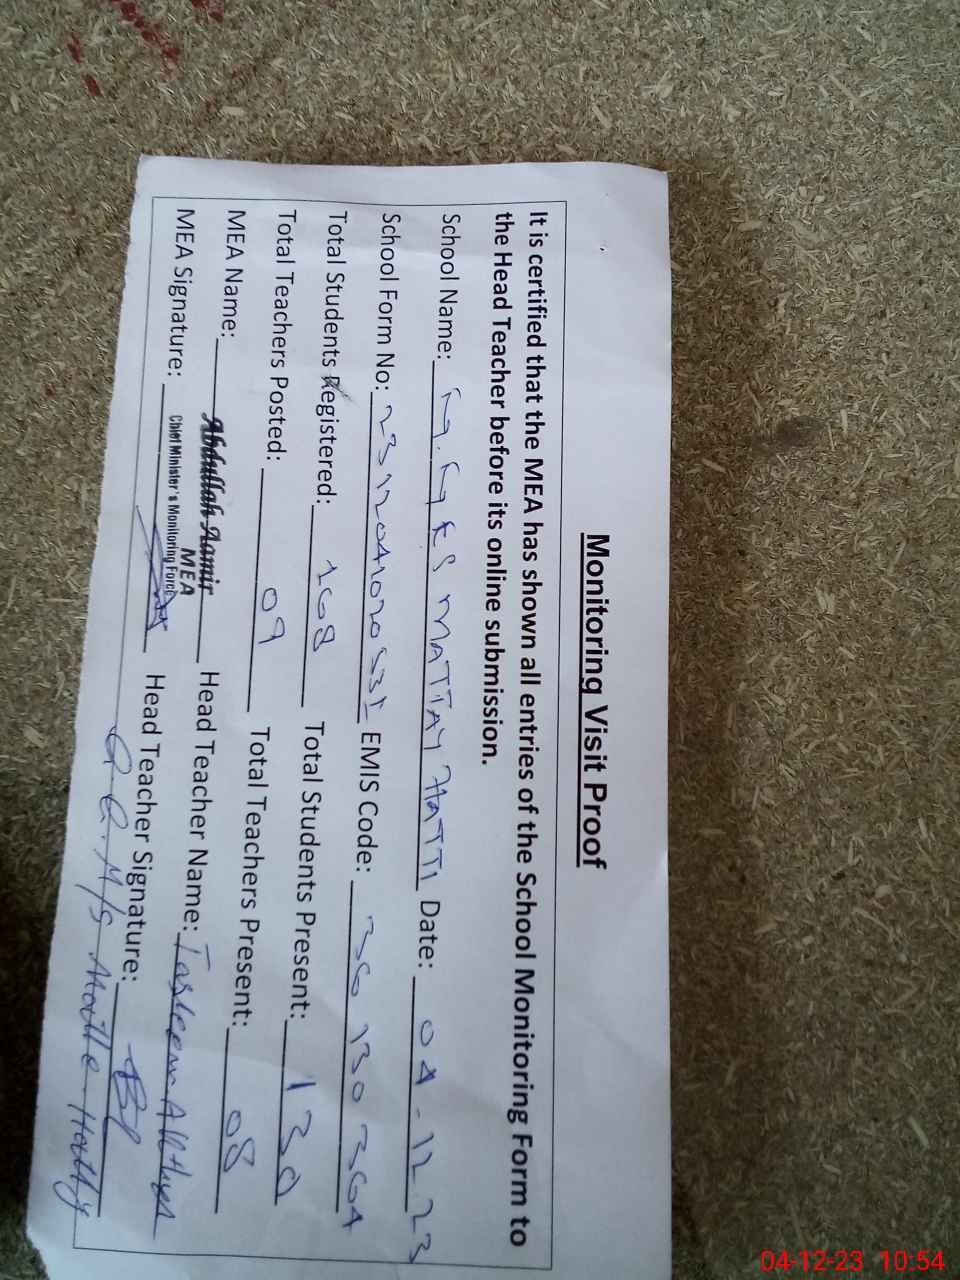 Monitoring Visit Proof
It is certified that the MEA has shown all entries of the School Monitoring Form to
the Head Teacher before its online submission.
School Name: MATTAY HATTI Date: 04-12-23
School Form No: EMIS Code: 36130364
Total Students Registered: 168 Total Students Present: 130
Total Teachers Posted: 09 Total Teachers Present: 08
MEA Name: Abdullah Aamir Head Teacher Name: Tasleem
MEA
Chief Minister's Monitoring Force
MEA Signature: Head Teacher Signature:
04-12-23 10:54